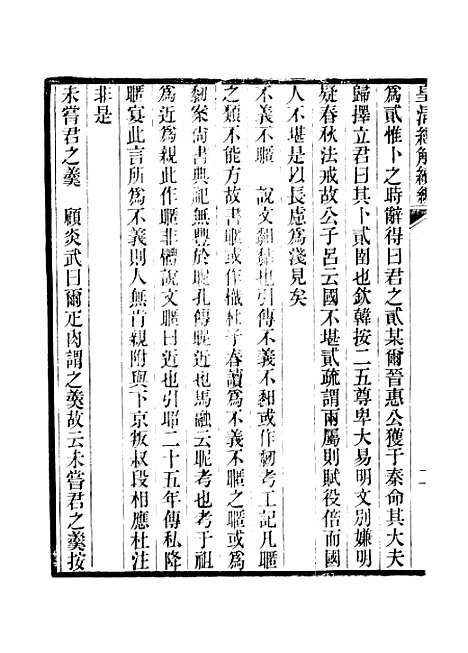 皇清經解續編
二
為貳惟卜之時辭得曰君之貳某爾晉惠公獲于秦命其大夫
歸擇立君曰其卜貳圉也欽韓按二五尊卑大易明文別嫌明
疑春秋法戒故公子呂云國不堪貳疏謂兩屬則賦役倍而國
人不堪是以長慮為淺見矣
不義不暱　說文䵑黏也引傳不義不䵑或作䵒考工記凡暱
之類不能方故書暱或作樴杜子春讀為不義不暱之暱或為
䵒案尚書典祀無豐於昵孔傳昵近也馬融云昵考也考于祖
為近為親此作暱非禰說文暱日近也引昭二十五年傳私降
暱宴此言所為不義則人無肯親附與下京叛叔段相應杜注
非是
未嘗君之羹　顧炎武曰爾疋肉謂之羹故云未嘗君之羹按